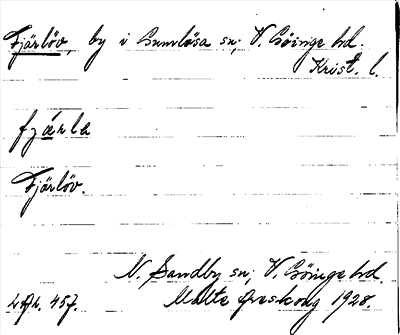 Fjärlöv, by i Gumlösa sn; V. Göinge hd.
Krist. l.
fjärla
Fjärlöv.
N. Sandby sn; V. Göinge hd.
Malte Areskoug 1928.
457.